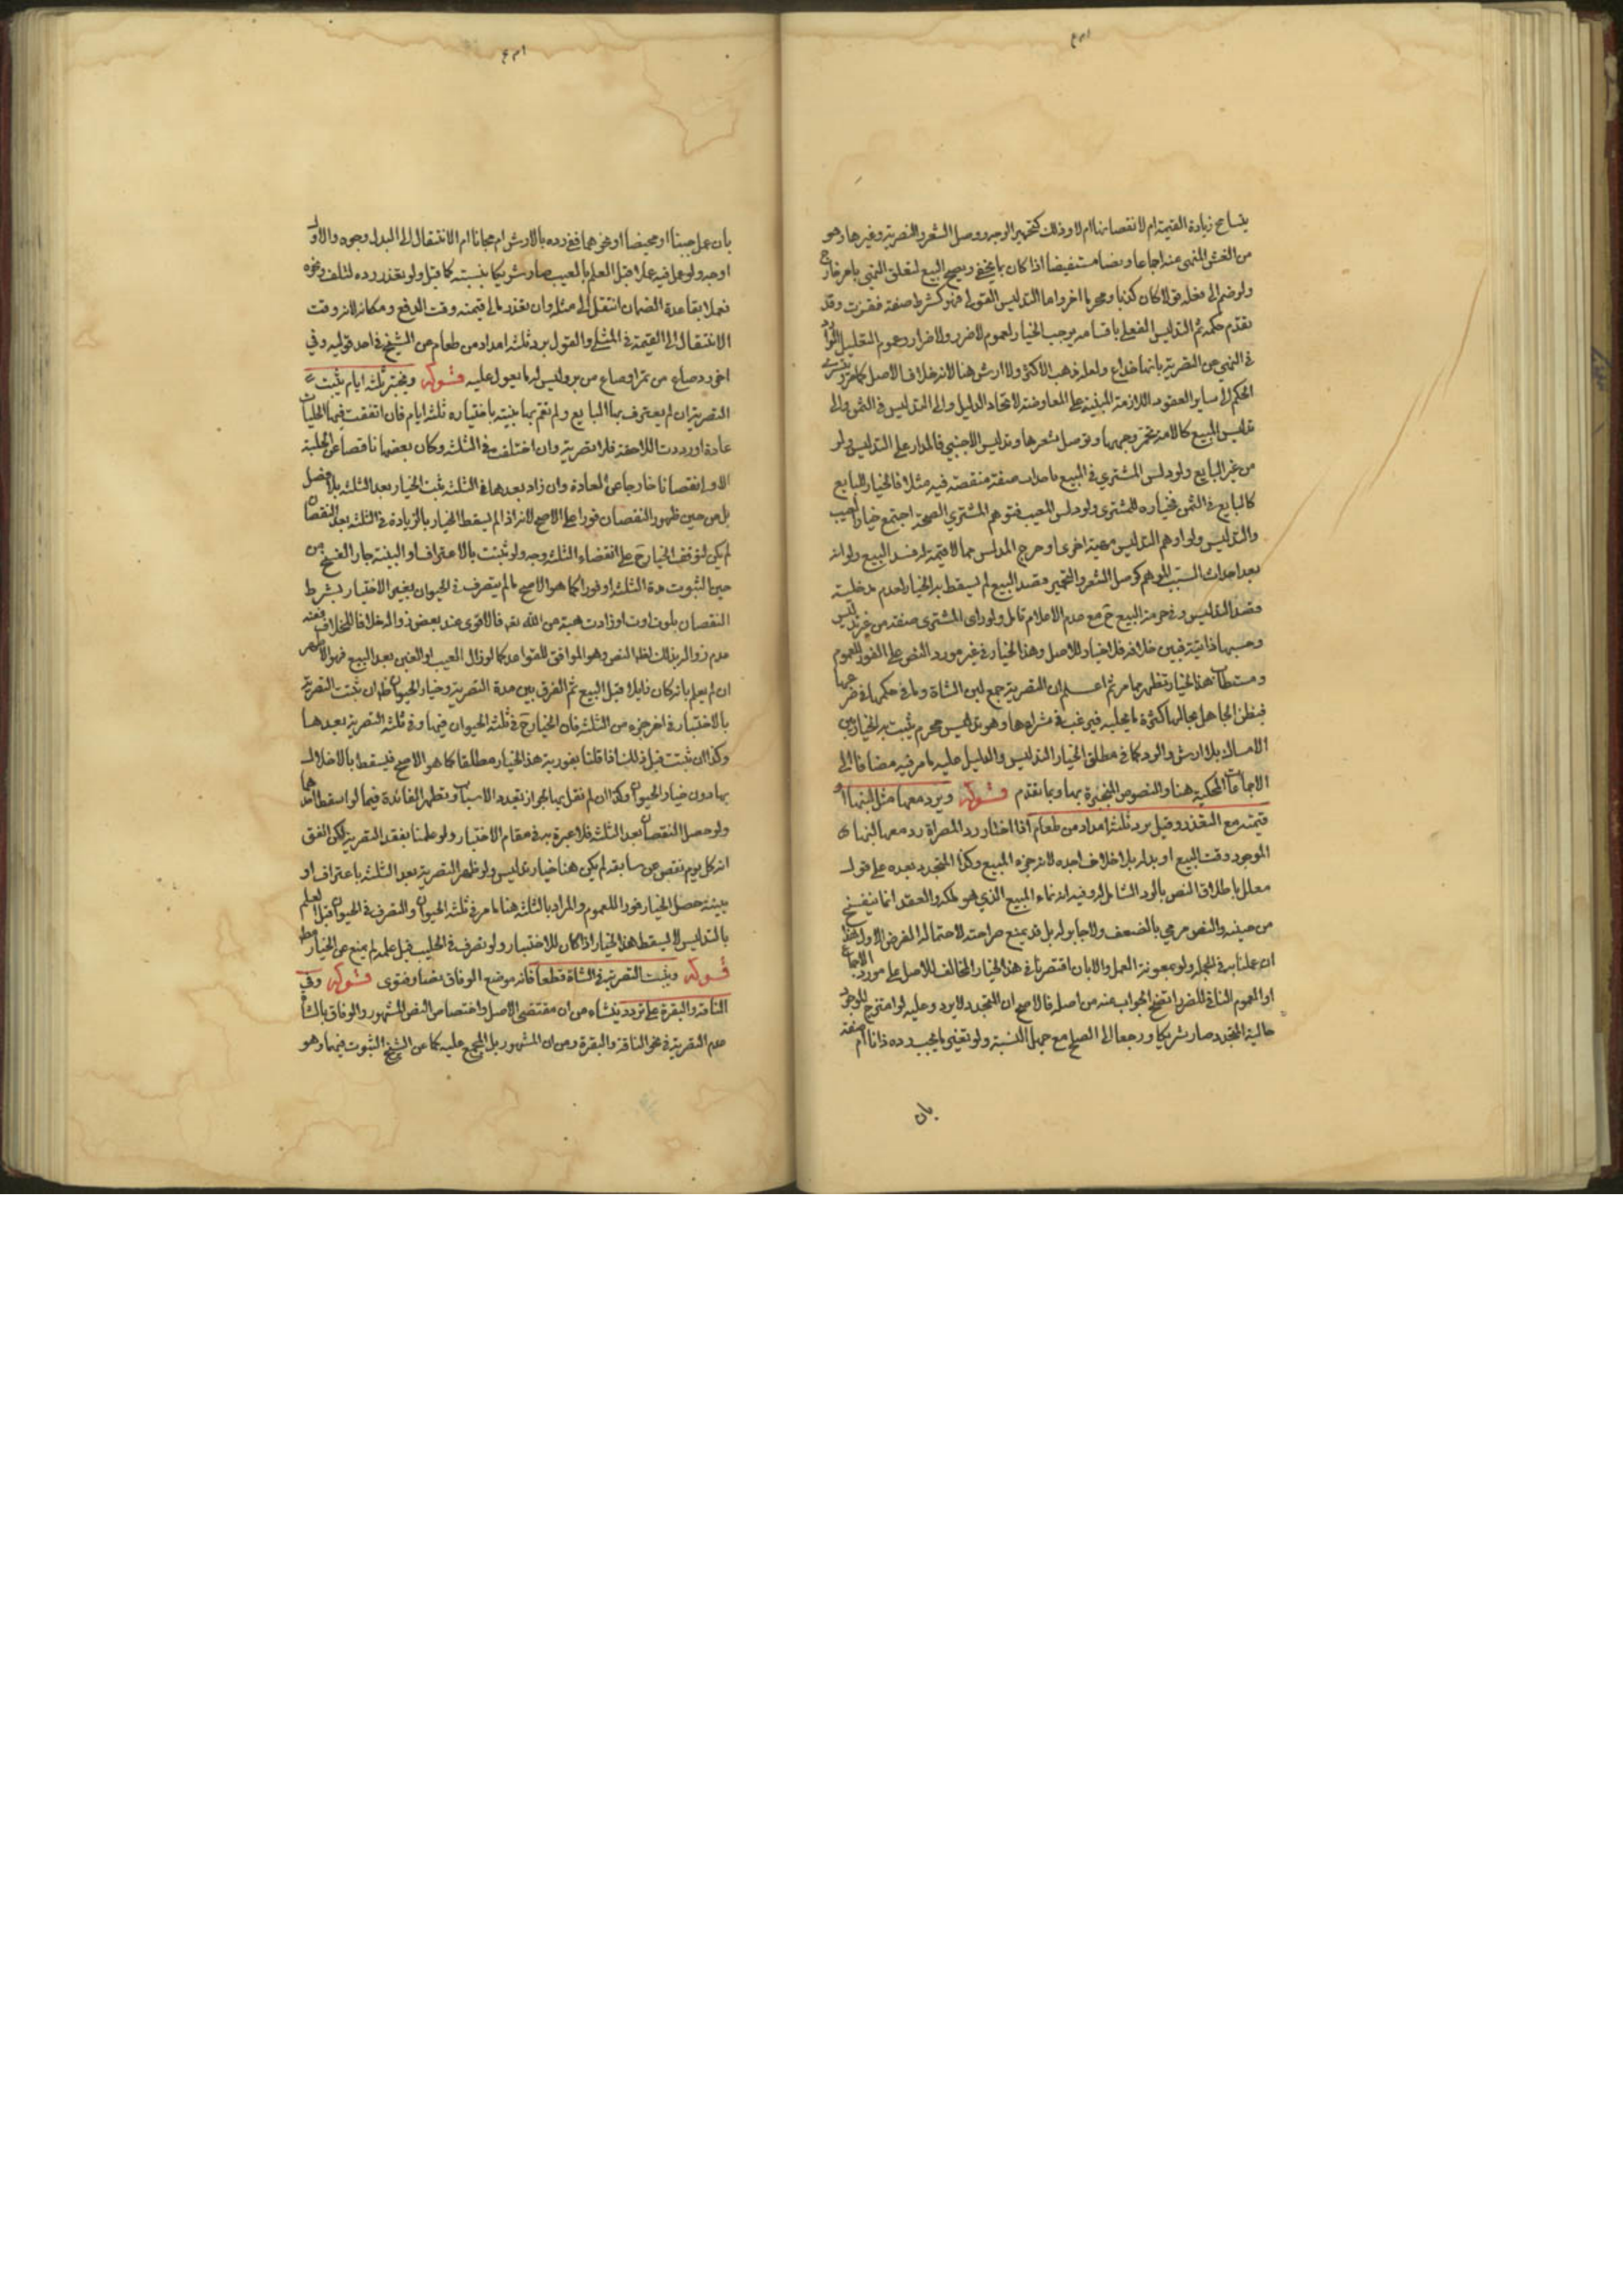 يتسامح زيادة القيمة ام لا نقصانها ام لا وذلك كتحمير الوجه ووصل الشعر والتصرية وغيرها وهو
من الغش المنهي عنه اجماعا ونصا مستفيضا اذا كان بما يخفى ويصح البيع لتعلق النهي بامر خارج
ولو ضم الى فعله قولا كان كذبا ومحرما اخر واما التدليس القولي فهو كشرط صفة ففقدت وقد
تقدم حكمه ثم التدليس الفعلي باقسامه يوجب الخيار لعموم لا ضرر ولا ضرار وعموم التعليل الوارد
في النهي عن التصرية بانها خداع ولعله ذهب الاكثر ولا ارش هنا لانه خلاف الاصل كما مر
الحكم الى ساير العقود اللازمة المبنية على المعاوضة لاتحاد الدليل والى التدليس في الثمن والى
تدليس المبيع كالامة تحمر وجهها وتوصل شعرها وتدليس الاجنبي فالمدار على التدليس ولو
من غير البايع ولو دلس المشتري في المبيع باحداث صفة منقصة فيه مثلا فالخيار للبايع
كالبايع في الثمن فخياره للمشتري ولو دلس المعيب فتوهم المشتري الصحة اجتمع خيار العيب
والتدليس ولو اوهم التدليس معيبة اخرى او خرج المدلس عما لا قيمة له فسد البيع ولو انه
بعد احداث السبب الموهم كوصل الشعر والتحمير مقصد البيع لم يسقط به الخيار لعدم مدخلية
قصد التدليس وفي حرمة البيع ح مع عدم الاعلام تامل ولو راى المشتري صفة من غير تدليس
وحسبها ذاتية فبين خلافه فلا خيار للاصل وهذا الخيار في غير مورد النص على الفور للعموم
ومسقطات هذا الخيار تظهر مما مر ثم اعلم ان التصرية جمع لبن الشاة وما في حكمها في ضرعها
فيظن الجاهل بحالها كثرة ما يحلبه فيرغب في شرائها وهو تدليس محرم يثبت به الخيار بين
الامساك بلا ارش والرد كما في مطلق الخيار التدليس والدليل عليه ما مر فيه مضافا الى
الاجماعات المحكية هنا والنصوص المنجبرة بها وبما تقدم قوله ويرد معها مثل لبنها او
قيمته مع التعذر وقيل يرد ثلثة امداد من طعام اذا اختار رد المصراة رد معها لبنها
الموجود وقت البيع او بدله بلا خلاف اجده لانه جزء المبيع وكذا المتجدد بعده على قول
معلل باطلاق النص بالرد الشامل له وفيه انه نماء المبيع الذي هو ملكه والعقد انما ينفسخ
من حينه والنص مرمي بالضعف ولا جابر له بل قد يمنع صراحته لاحتماله الفرض الاول
ان علمنا به في الجملة ولو بمعونة العمل والا بان اقتصرنا في هذا الخيار المخالف للاصل على مورد الاجماع
او العموم النافي للضرر اتضح الجواب عنه من اصله فالاصح ان المتجدد لا يرد وعليه لو امتزج الموجود
حالية المتجدد صار شريكا ورجعا الى الصلح مع جهل النسبة ولو تغير ما يجب رده ذاتا ام صفة
بان
بان عمل جبنا او مخيضا او نحوهما ففي رده بالارش ام مجانا ام الانتقال الى البدل وجوه والاول
اوجه ولو عمل فيه عملا قبل العلم بالعيب صار شريكا بنسبته كما قيل ولو تعذر رده لتلف ونحوه
فعملا بقاعدة الضمان انتقل الى مثله وان تعذر فالى قيمته وقت الدفع ومكانه لانه وقت
الانتقال الى القيمة في المثلي والقول برد ثلثة امداد من طعام عن الشيخ في احد قوليه وفي
اخر رد صاع من تمر او صاع من بر وليس له ما يعول عليه قوله ويختبر ثلثة ايام يثبت
التصرية ان لم يعترف بها البايع ولم تقم بها بينة باختياره ثلثة ايام فان اتفقت فيها الحلبات
عادة او زادت اللاحقة فلا تصرية وان اختلفت في الثلثة وكان بعضها ناقصا عن الحلبة
الاولى نقصانا خارجا عن العادة وان زاد بعدها في الثلثة يثبت الخيار بعد الثلثة بلا فصل
بل من حين ظهور النقصان فورا على الاصح لانه اذا لم يسقط الخيار بالزيادة في الثلثة بعد النقصان
لم يكن لتوقف الخيار ح على انقضاء الثلثة وجه ولو ثبتت بالاعتراف او البينة جاز الفسخ من
حين الثبوت مدة الثلثة او فورا كما هو الاصح ما لم يتصرف في الحيوان بغير الاختيار بشرط
النقصان بل وان زادت هبة من الله تعالى فالاقوى عند بعض زواله خلافا للخلاف
عدم زواله بذلك لظاهر النص وهو الموافق للقواعد كما لو زال العيب او الغبن بعد البيع فهو الاظهر
ان لم يعلم بانه كان زايلا قبل البيع ثم الفرق بين مدة التصرية وخيار الحيوان ظاهر ان ثبتت التصرية
بالاختبار في اخر جزء من الثلثة فان الخيار ح في ثلثة الحيوان فيها وفي ثلثة التصرية بعدها
وكذا ان ثبتت قبل ذلك اذا قلنا بفورية هذا الخيار مطلقا كما هو الاصح فيسقط بالاخلال
بها دون خيار الحيوان وكذا ان لم نقل بها لجواز تعدد الاسباب وتظهر الفائدة فيما لو اسقط احدهما
ولو حصل النقصان بعد الثلثة فلا عبرة به في مقام الاختبار ولو علمنا بفقد التصرية لكن اتفق
انه كل يوم نقص عن سابقه لم يكن هنا خيار تدليس ولو ظهر التصرية بعد الثلثة باعتراف او
بينة حصل الخيار فورا للعموم والمراد بالثلثة هنا ما مر في ثلثة الحيوان والتصرف في الحيوان قبل العلم
بالتدليس لا يسقط هذا الخيار اذا كان للاختبار ولو تصرف في الحليب قبل علمه لم يمنع عن الخيار
قوله ويثبت التصرية في الشاة قطعا فانه موضع الوفاق نصا وفتوى قوله وفي
الناقة والبقرة على تردد ينشاء من ان مقتضى الاصل واختصاص النص المشهور والوفاق بالشاة
عدم التصرية في نحو الناقة والبقرة ومن ان المشهور بل المجمع عليه كما عن الشيخ الثبوت فيها وهو